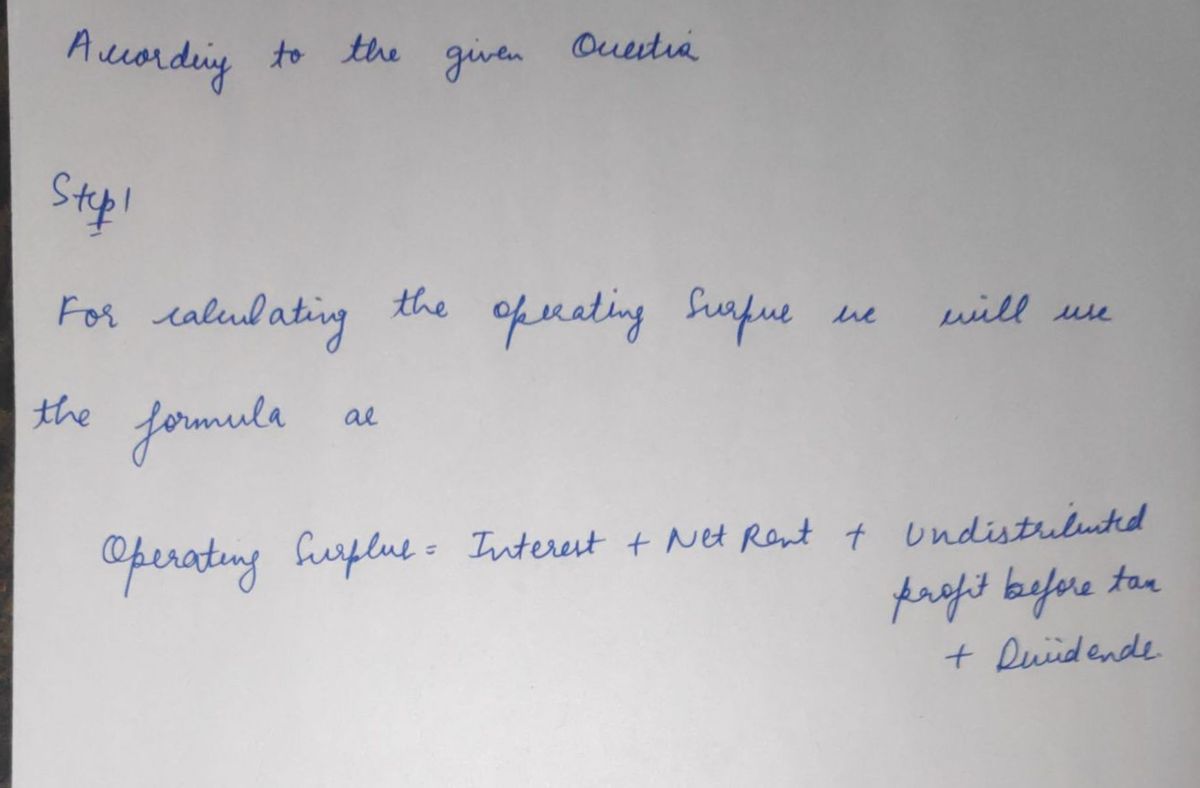 According to the given Question
Step 1
For calculating the operating Surplus we will use
the formula as
Operating Surplus = Interest + Net Rent + Undistributed
profit before tax
+ Dividends.